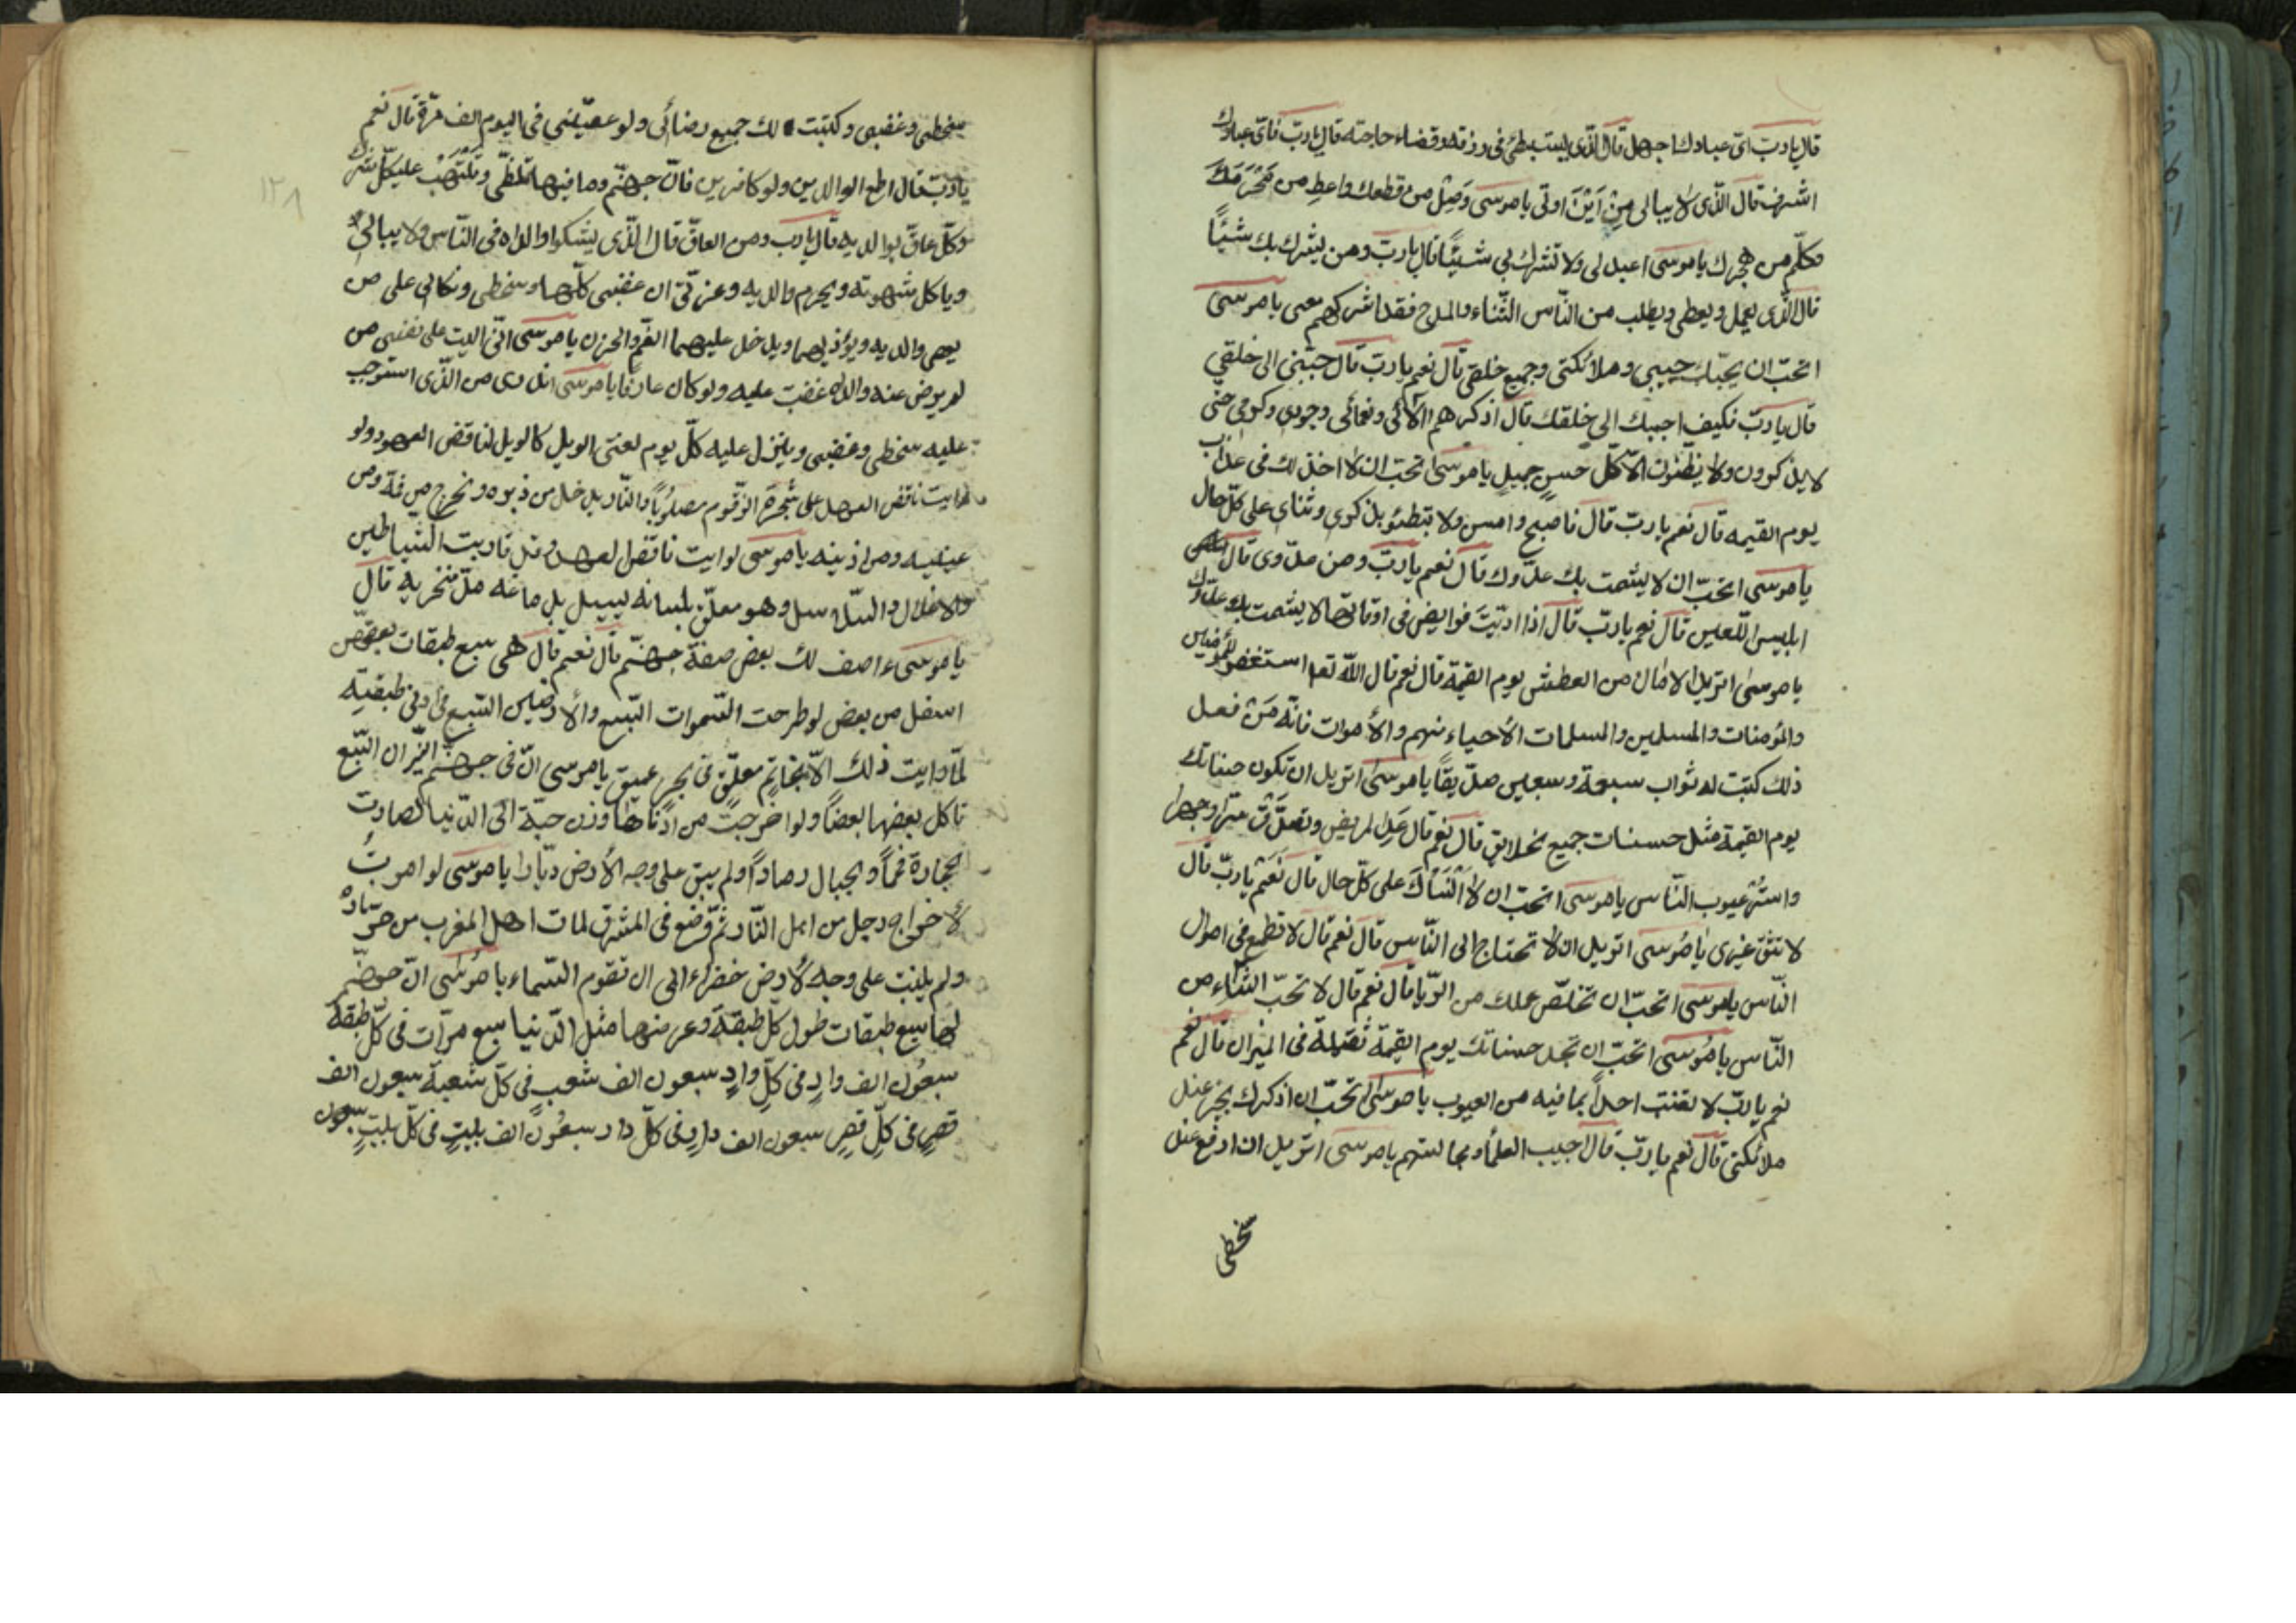 قال يا رب اىّ عبادك اجهل قال الّذى يستبطئ فى رزقه وقضاء حاجته قال يا ربّ فاىّ عبادك
اشرف قال الّذى لا يبالى مِنْ اَيْنَ اوتى يا موسى وَصِلْ من قطعك واعطِ من حَرَمَكَ
وكلّم من هجرك يا موسى اعبد لى ولا تشرك بى شيئًا قال يا ربّ ومن يشرك بك شيئًا
قال الّذى يعمل ويعطى ويطلب من النّاس الثّناء والمدح فقد اشركهم معى يا موسى
اتحبّ ان يحبّك حبيبى وملائكتى وجميع خلقى قال نعم يا ربّ قال حبّبنى الى خلقى
قال يا ربّ فكيف احببك الى خلقك قال اذكرهم الآئى ونعمائى وجودى وكرمى حتى
لا يذكرون ولا يظنون الّا كلّ حسنٍ جميلٍ يا موسى اتحبّ ان لا اخذلك فى عذاب
يوم القيمه قال نعم يا ربّ قال فاصبح وامس ولا تبطئو بذكرى وثناى على كلّ حال
يا موسى اتحبّ ان لا يشمت بك عدّوك قال نعم يا ربّ ومن عدّوى قال
ابليس اللّعين قال نعم يا ربّ قال اذا ادّيت فرايض فى اوقاتها لا يشمت بك عدّوك
يا موسى اتريد الامان من العطش يوم القيمة قال نعم قال اللّه تعا استغفر للمؤمنين
والمؤمنات والمسلمين والمسلمات الاحياء منهم والأموات فانّه مَنْ فعل
ذلك كتبت له ثواب سبعة وسبعين صدّيقًا يا موسى اتريد ان تكون حسناتك
يوم القيمة مثل حسنات جميع خلايق قال نعم قال عَدِ المريض وتصدّق سرّا وجهرا
واستُر عيوب النّاس يا موسى اتحبّ ان لا انْسَاكَ على كلّ حال قال نَعَمْ يا ربّ قال
لا تثق غيرى يا موسى اتريد ان لا تحتاج الى النّاس قال نعم قال لا تطمع فى اموال
النّاس يا موسى اتحبّ ان تخلّص عملك من الرّيا قال نعم قال لا تحبّ الثناء من
النّاس يا موسى اتحبّ ان تجد حسناتك يوم القيمة ثقيلة فى الميزان قال نعم
نعم يا ربّ لا تغتب احداً بما فيه من العيوب يا موسى اتحبّ ان اذكرك بخير عند
ملائكتى قال نعم يا ربّ قال احبب العلماء وجالستهم يا موسى اتريد ان ارفع عنك
سخطى
سخطى وغضبى وكتبت لك جميع رضائى ولو عصيتنى فى اليوم الف مرّة قال نعم
يا ربّ قال اطع الوالدين ولو كافرين فانّ جهنّم وما فيها تلظّى وتلتهب على كلّ شرك
وكلّ عاقّ بوالديه قال يا رب ومن العاقّ قال الّذى يشكوا والداه فى النّاس ولا يبالى
وياكل شهوته ويحرم والديه وعزّتى ان غضبى كلّها وسخطى ونكالى على من
يعصى والديه ويؤذيهما ويدخل عليهما الغمّ والحزن يا موسى انّى اليت على نفسى من
لم يرض عنه والداه غضبت عليه ولو كان عارفًا يا موسى اتدرى من الّذى استوجب
عليه سخطى وغضبى وينزل عليه كلّ يوم لعنتى الويل كالويل لناقض العهود ولو
رايت ناقض العهد على شجرة الزّقوم مصلوبًا والنّار يدخل من دبره وتخرج من فمه ومن
عينيه ومن اذينه يا موسى لو رايت ناقض العهد وقد قاربت الشياطين
والاغلال والسّلاسل وهو معلّق بلسانه ليسيل بدماغه من منخريه قال
يا موسى ءاصف لك بعض صفة جهنّم قال نعم قال هى سبع طبقات بعضهن
اسفل من بعض لو طرحت السّموات السّبع والأرضين السّبع فى ادنى طبقتيه
لمّا رايت ذلك الّا بخاتمٍ معلّقٍ فى بحر عميق يا موسى انّ فى جهنّم النّيران السّبع
تاكل بعضها بعضاً ولو اخرجت من ادناها وزن حبّة الى الدّنيا لصارت
الحجارة فحماً والجبال رماداً ولم يبق على وجه الأرض ديّارا يا موسى لو امرت
لأخراج رجل من اهل النّار ثمّ وضع فى المشرق لمات اهل المغرب من حرّ ناره
ولم يلبنت على وجه الأرض خضراء الى ان تقوم السّماء يا موسى انّ جهنّم
لها سبع طبقات طول كلّ طبقة وعرضها مثل الدّنيا سبع مرّات فى كلّ طبقة
سبعُون الف وادٍ فى كلّ وادٍ سبعون الف شعب فى كلّ شعبة سبعون الف
قصرٍ فى كلّ قصرٍ سبعون الف دارٍ فى كلّ دار سبعُون الف بيتٍ فى كلّ بيتٍ سبعون